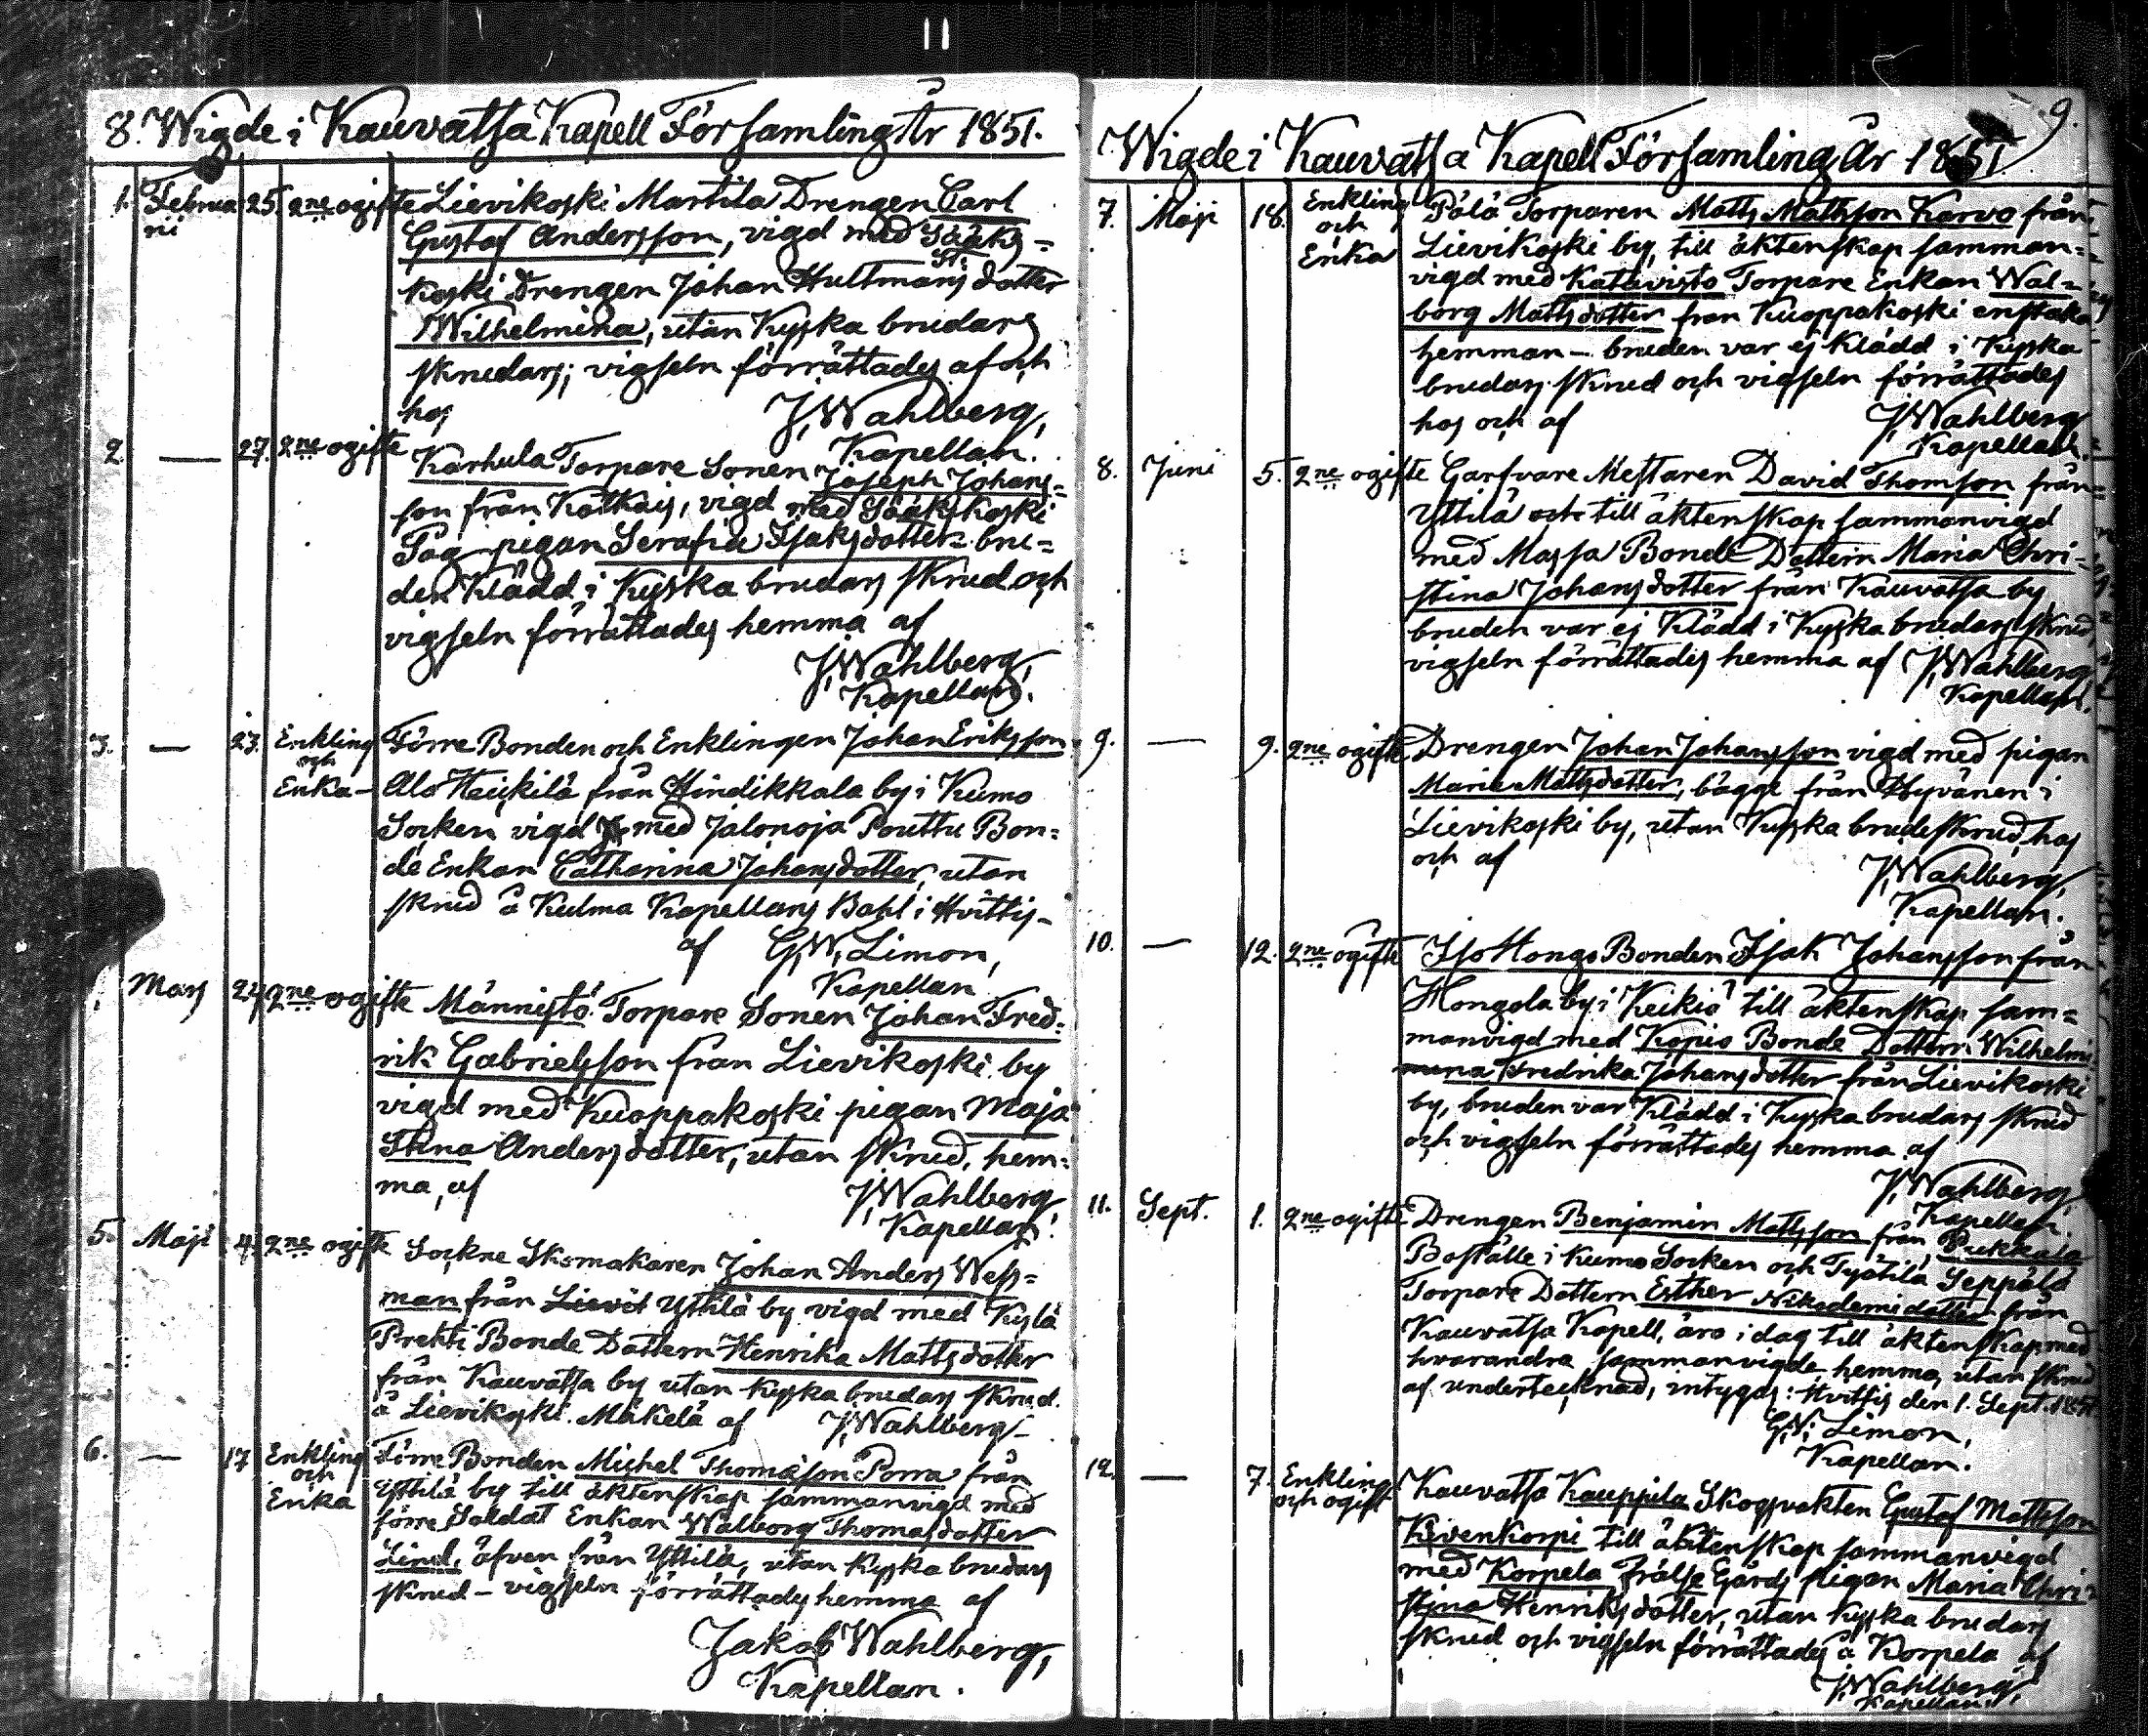 8. Wigde i Kauvatsa Kapell Församling År 1851.
1. Februarii 25. 2ne ogifte Lievikoski Martila Drengen Carl
Gustaf Andersson, vigd med Sääks=
koski Drengen Johan Hultmans dotter
Wilhelmina, utan Kyska brudars
skrudars; vigseln förrättades af och
hos J. Wahlberg,
Kapellan.
2. — 27. 2ne ogifte Karhula Torpare Sonen Joseph Johans=
son från Kätkäis, vigd med Sääkskoski
pigan Serafia Isaksdotter bru=
den Klädd i Kyska brudars skrud och
vigseln förrättades hemma af
J. Wahlberg,
Kapellan.
3. — 23. Enkling och Enka – Förre Bonden och Enklingen Johan Eriksson
Alo Heickilä från Hindikkala by i Kumo
Socken vigd med Jalonoja Pouttu Bon=
de Enkan Catharina Johansdotter, utan
skrud å Kulma Kapellans Bohl i Hvittis –
af G. W. Limon,
Kapellan
Mars 24 2ne ogifte Männistö Torpare Sonen Johan Fred=
rik Gabrielsson från Lievikoski by
vigd med Kuoppakoski pigan Maja
Stina Andersdotter, utan skrud, hem=
ma, af J. Wahlberg
Kapellan.
5. Maji 4. 2ne ogifte Sockne Skomakaren Johan Anders Wess=
man från Lievit Yttilä by vigd med Kylä
Prekti Bonde Dottern Henrika Mattsdotter
från Kauvatsa by utan kyska brudars skrud.
å Lievikoski Mäkelä af J. Wahlberg –
6. — 17 Enkling och Enka Förre Bonden Michel Thomasson Porra från
Yttilä by till äktenskap sammanvigd med
förre Soldat Enkan Walborg Thomasdotter
Lind, äfven från Yttilä, utan Kyska brudars
skrud – vigseln förrättades hemma af
Jakob Wahlberg,
Kapellan.
9.
Wigde i Kauvatsa Kapell Församling År 1851
7. Maji 18. Enkling och Enka Pälä Torparen Matts Mattsson Karvo från
Lievikoski by, till äktenskap samman=
vigd med Katavisto Torpare Enkan Wal=
borg Mattsdotter från Kuoppakoski enstaka
hemman – bruden var ej Klädd i Kyska
brudars skrud och vigseln förrättades
hos och af J. Wahlberg
Kapellan.
8. Juni 5. 2ne ogifte Garfvare Mestaren David Thomson från
Yttilä och till äktenskap sammanvigd
med Massa Bonde Dottern Maria Chri=
stina Johansdotter från Kauvatsa by
bruden var ej Klädd i Kyska brudars skrud,
vigseln förrättades hemma af J. Wahlberg,
Kapellan.
9. — 9. 2ne ogifte Drengen Johan Johansson vigd med pigan
Maria Mattsdotter, bägge från Hyvänen i
Lievikoski by, utan Kyska brudeskrud, hos
och af J. Wahlberg,
Kapellan.
10. — 12. 2ne ogifte Iso Hongo Bonden Isak Johansson från
Hongola by i Keikiö till äktenskap sam=
manvigd med Kopio Bonde Dottern Wilhelmi
na Fredrika Johansdotter från Lievikoski
by, bruden var Klädd i Kyska brudars skrud
och vigseln förrättades hemma af
J. Wahlberg,
Kapellan
11. Sept. 1. 2ne ogifte Drengen Benjamin Mattsson från Pukkala
Boställe i Kumo Socken och Työtilä Seppälä
Torpare Dottern Esther Nikodemidotter från
Kauvatsa Kapell, äro i dag till äktenskap med
hvarandra sammanvigde, hemma, utan skrud
af undertecknad, intygas: Hvittis den 1. Sept. 1851
G. W. Limon,
Kapellan.
12. — 7. Enkling och ogift Kauvatsa Kauppila Skogsvakten Gustaf Mattsson
Kivenkorpi till äktenskap sammanvigd
med Korpela Frälse Gårds pigan Maria Chri=
stina Henriksdotter, utan kyska brudars
skrud och vigseln förrättades å Korpela af
J. Wahlberg,
Kapellan.